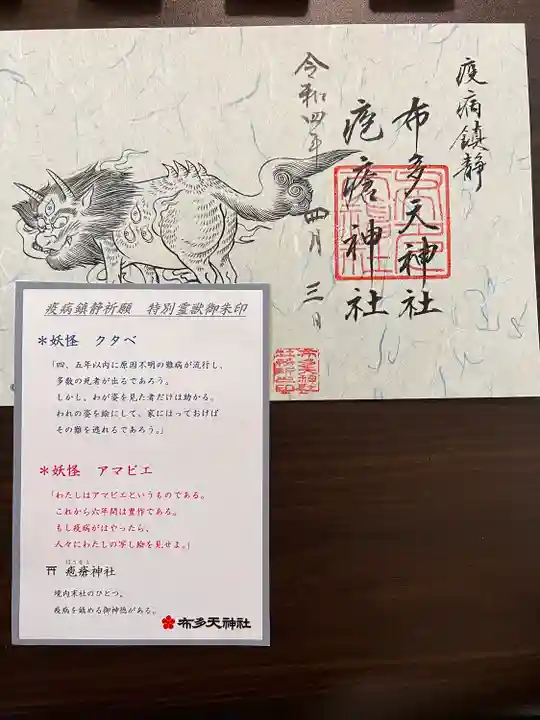 疫病鎮静
布多天神社
疱瘡神社
令和四年 四月 三日
疫病鎮静祈願 特別霊獣御朱印
＊妖怪 クタベ
「四、五年以内に原因不明の難病が流行し、
多数の死者が出るであろう。
しかし、わが姿を見た者だけは助かる。
われの姿を絵にして、家にはっておけば
その難を逃れるであろう。」
＊妖怪 アマビエ
「わたしはアマビエというものである。
これから六年間は豊作である。
もし疫病がはやったら、
人々にわたしの写し絵を見せよ。」
ほうそう
疱瘡神社
境内末社のひとつ。
疫病を鎮める御神徳がある。
布多天神社